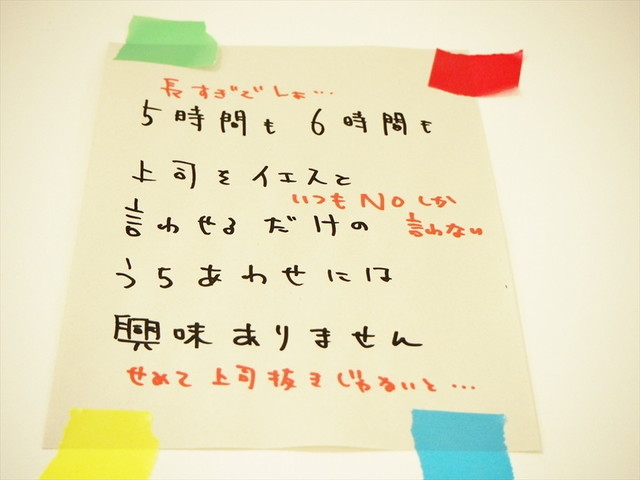 長すぎでしょ…
5時間も6時間も
上司をイエスと
いつもNOしか
言わせるだけの
言わない
うちあわせには
興味ありません
せめて上司抜きじゃないと…